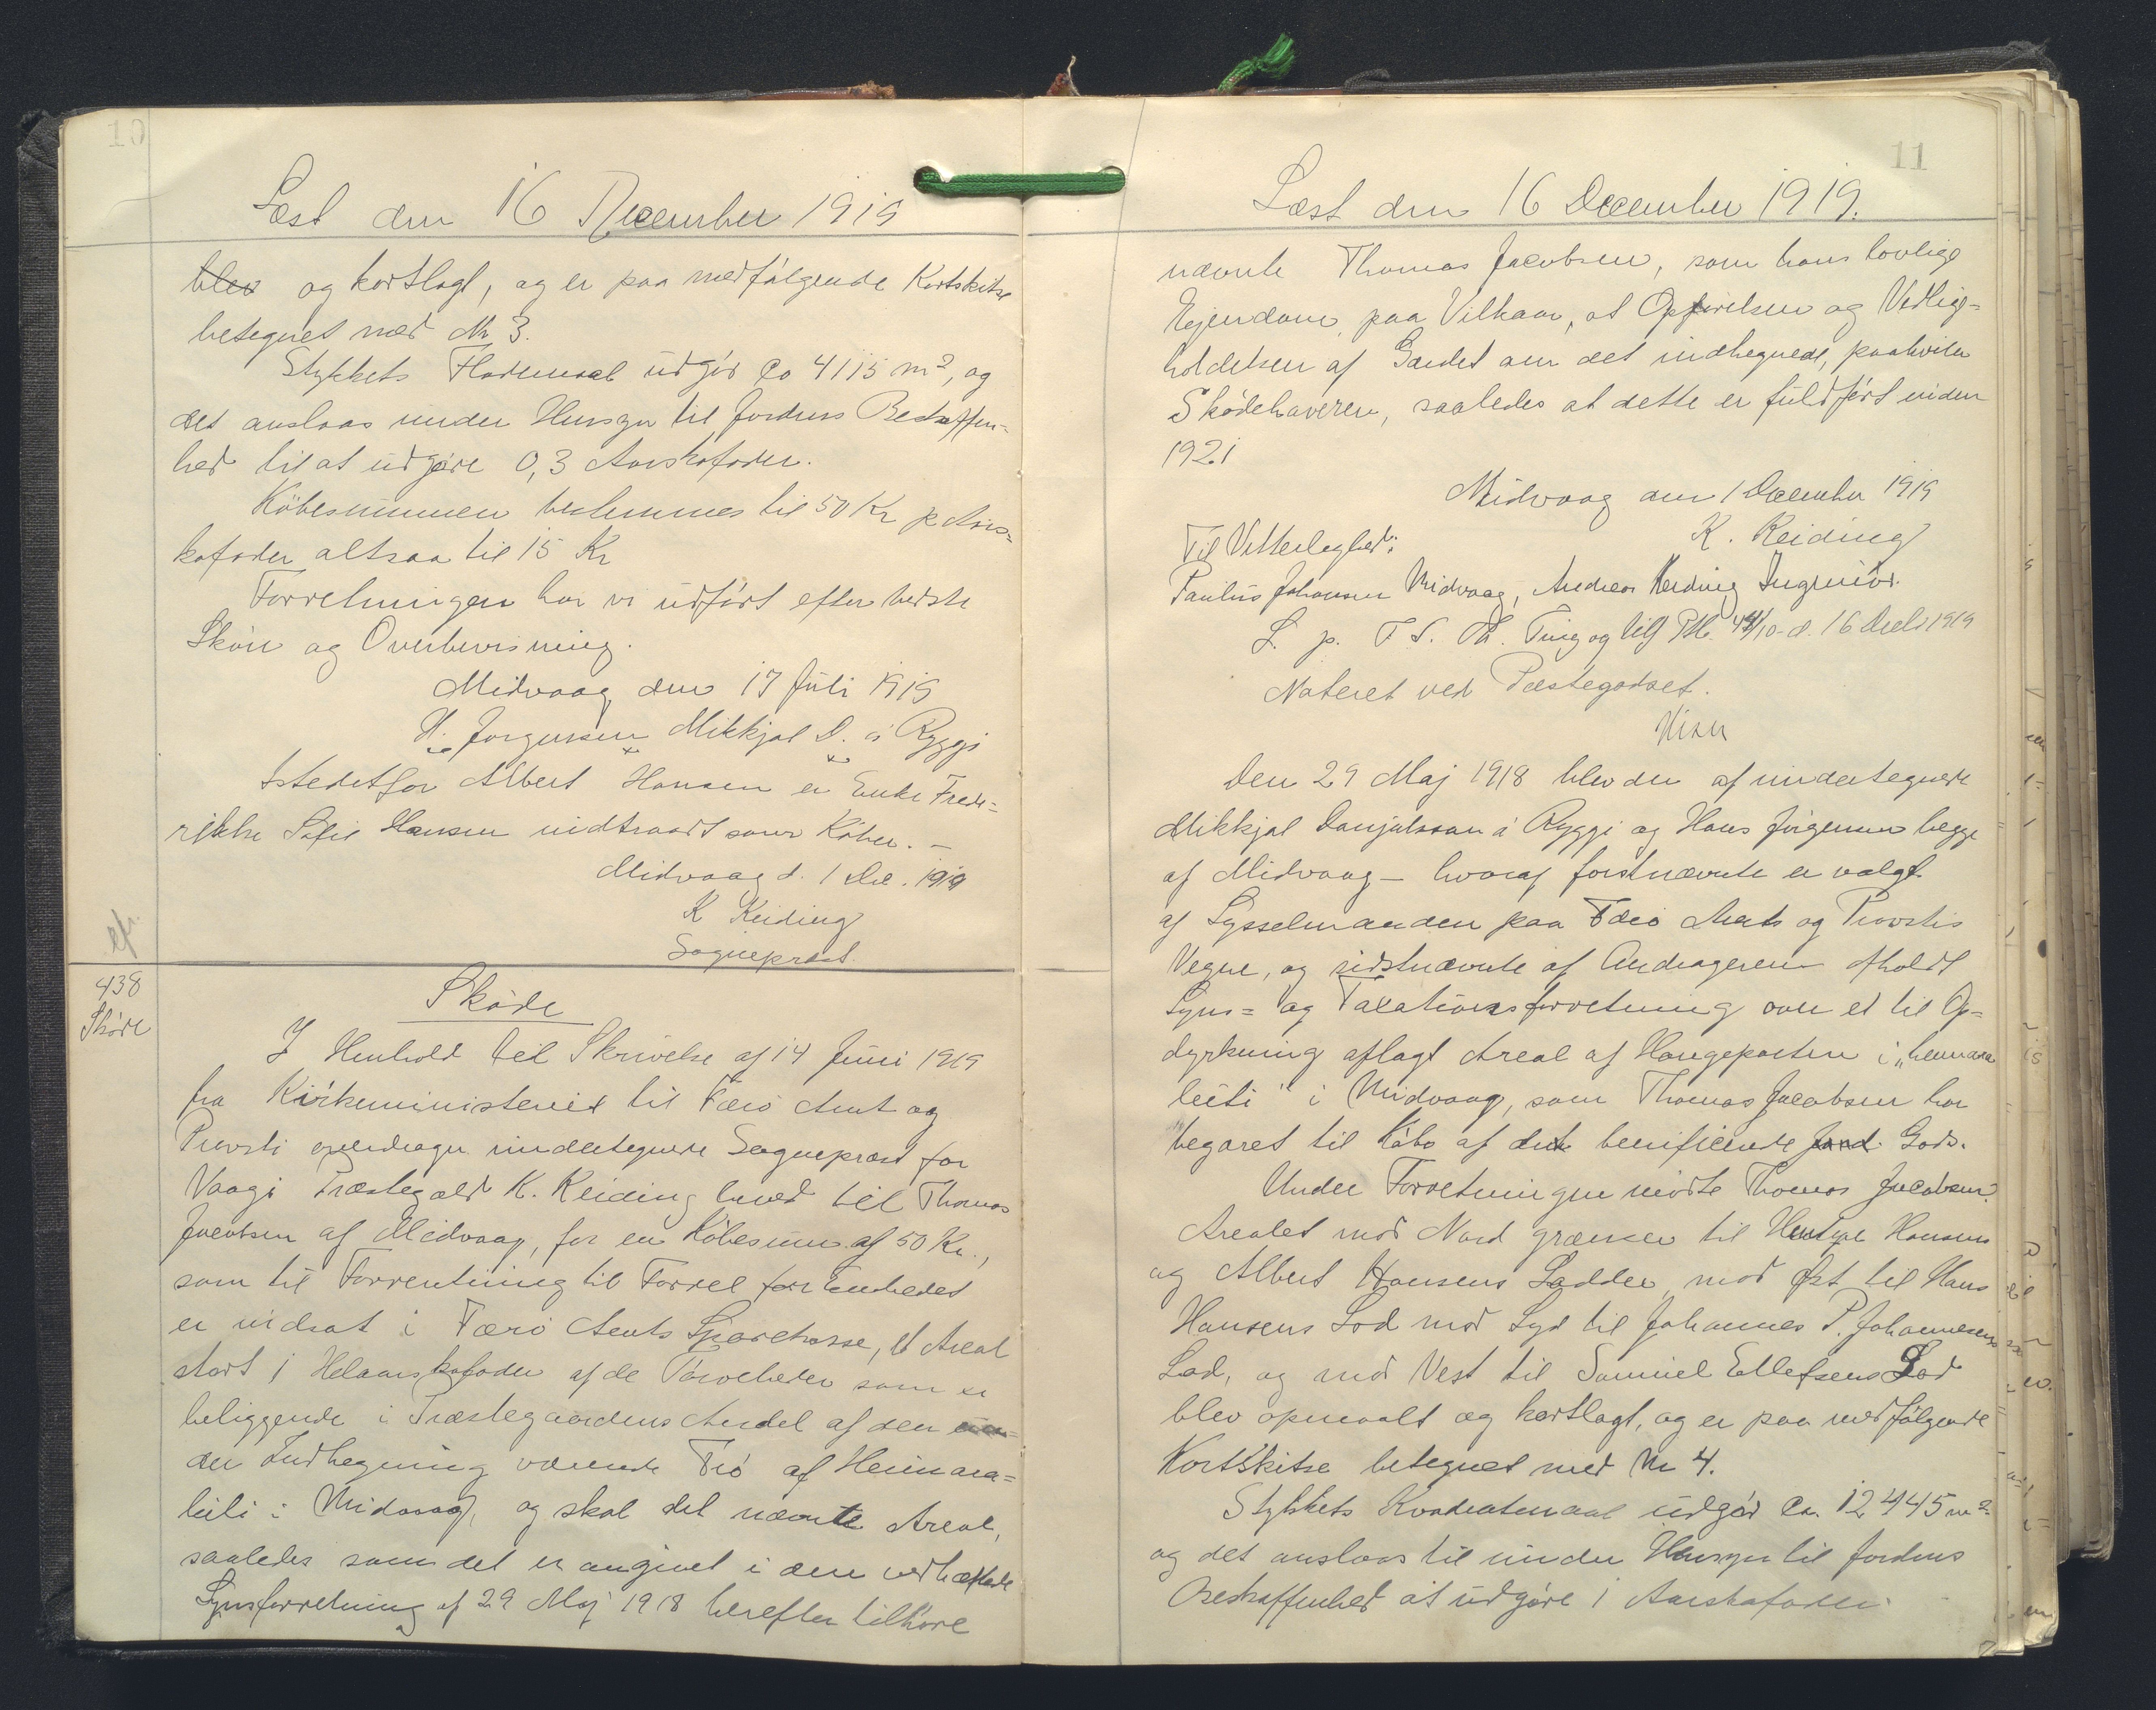 10
Læst den 16 December 1919
blev og kortlagt, og er paa medfølgende Kortskitse
betegnet med Nr 3.
Stykkets Flademaal udgör Ca 4115 m², og
det anslaas under Hensyn til Jordens Beskaffen=
hed til at udgjøre 0,3 Aarskofoder.
Köbesummen bestemmes til 50 Kr pr Aars=
kofoder altsaa til 15 Kr
Forretningen har vi udfört efter bedste
Skön og Overbevisning.
Midvaag, den 17 Juli 1919
H. Jørgensen Mikkjal D. á Ryggi
Istedetfor Albert Hansen er Enke Frede=
rikke Sofie Hansen indtraadt som Köber. –
Midvaag d. 1 Dec. 1919
K Keiding
Sognepræst.
438
Sköde
Sköde
I Henhold til Skrivelse af 14 Juni 1919
fra Kirkeministeriet til Færö Amt og
Provsti overdrager undertegnede Sognepræst for
Vaagö Præstegæld K. Keiding herved til Thomas
Jacobsen af Midvaag, for en Köbesum af 50 Kr.,
som til Forrentning til Fordel for Embedet
er indsat i Færö Amts Sparekasse, et Areal
stort 1 Helaarskofoder af de Törvelieder som er
beliggende i Præstegaardens Andel af den un=
der Indhegning værende Tró af Heimara=
leiti i Midvaag, og skal det nævnte Areal,
saaledes som det er angivet i den vedhæftede
Synsforretning af 29 Maj 1918 herefter tilhöre
11
Læst den 16 December 1919.
nævnte Thomas Jacobsen, som hans lovlige
Ejendom, paa Vilkaar, at Opförelsen og Vedlige=
holdelsen af Gærdet om det indhegnede, paahviler
Skødehaveren, saaledes at dette er fuldfört inden
1921
Midvaag den 1 December 1919
K. Keiding
Til Vitterlighed:
Paulus Johansen Midvaag, Andreas Keiding Ingeniör.
L. p. F S. Th. Ting og till Ptk. 49/10 d. 16 Decb 1919
Noteret ved Fæstegodset.
Den 29 Maj 1918 blev der af undertegnede
Mikkjal Danjalsson á Ryggi og Hans Jörgensen begge
af Midvaag – hvoraf förstnævnte er valgt
af Sysselmanden paa Færö Amts og Provstis
Vegne, og sidstnævnte af Andrageren afholdt
Syns= og Taxationsforretning over et til Op=
dyrkning aflagt Areal af Haugeparten i "heimara
leiti" i Midvaag, som Thomas Jacobsen har
begæret til Köbs af det benificerede Jord. Gods.
Under Forretningen mödte Thomas Jacobsen.
Arealet mod Nord grænser til Hansens
og Albert Hansens Lodder, mod Øst til Hans
Hansens Lod mod Syd til Johannes P. Johannesens
Lod, og mod Vest til Samuel Ellefsens Lod
blev opmaalt og kortlagt, og er paa medfølgende
Kortskitse betegnet med Nr 4.
Stykkets Kvadratmaal udgör Ca. 12445 m²
og det anslaas til under Hensyn til Jordens
Beskaffenhed at udgöre 1 Aarskofoder